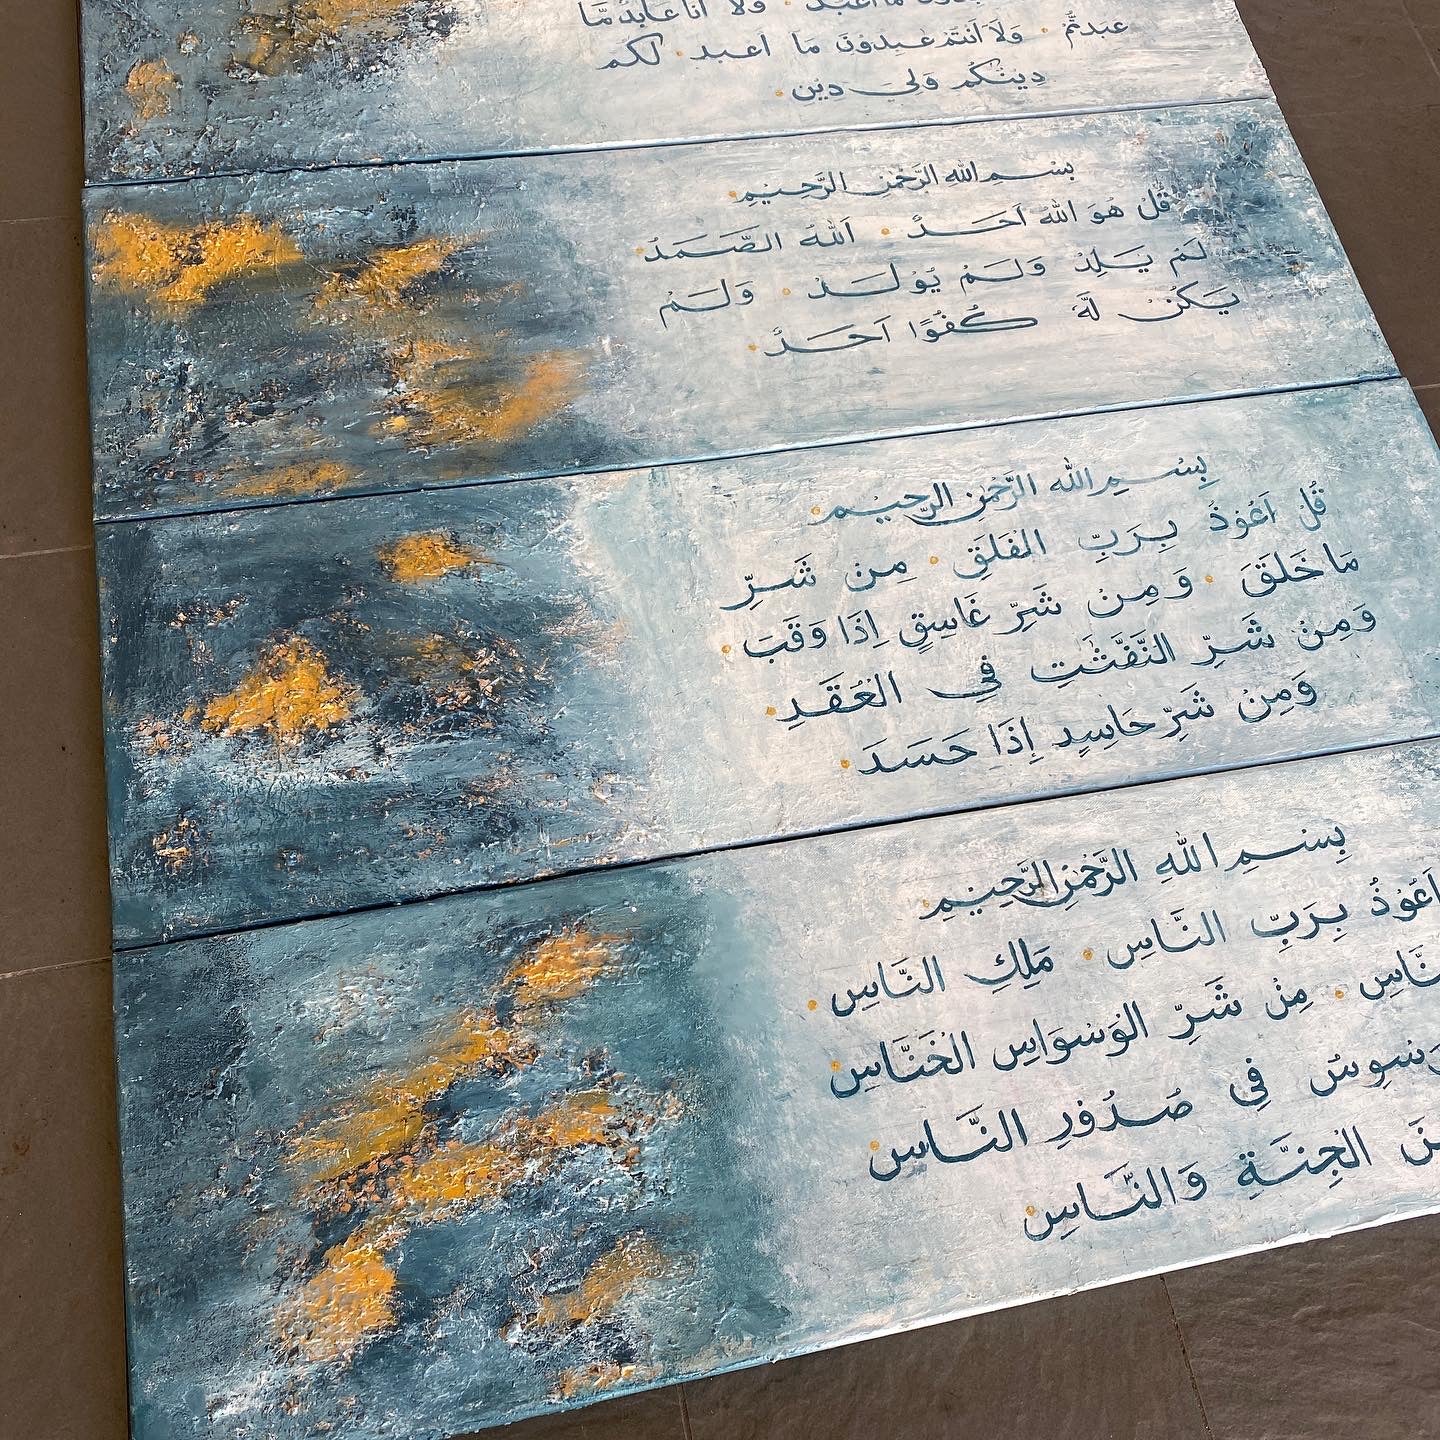 ما اعبد • ولا انا عابد مّا
عبدتّم • ولا انتم عبدون ما اعبد لكم
دينكم ولي دين •
بسم الله الرّحمن الرّحيم •
قل هو الله احد • الله الصّمد •
لم يلد ولم يولد • ولم
يكن لّه كفوًا احد •
بسم الله الرّحمن الرّحيم •
قل اعوذ بربّ الفلق • من شرّ
ما خلق • ومن شرّ غاسق اذا وقب •
ومن شرّ النّفّثت في العقد •
ومن شرّ حاسد اذا حسد •
بسم الله الرّحمن الرّحيم •
اعوذ بربّ النّاس • ملك النّاس •
النّاس • من شرّ الوسواس الخنّاس •
في صدور النّاس •
الجنّة والنّاس •